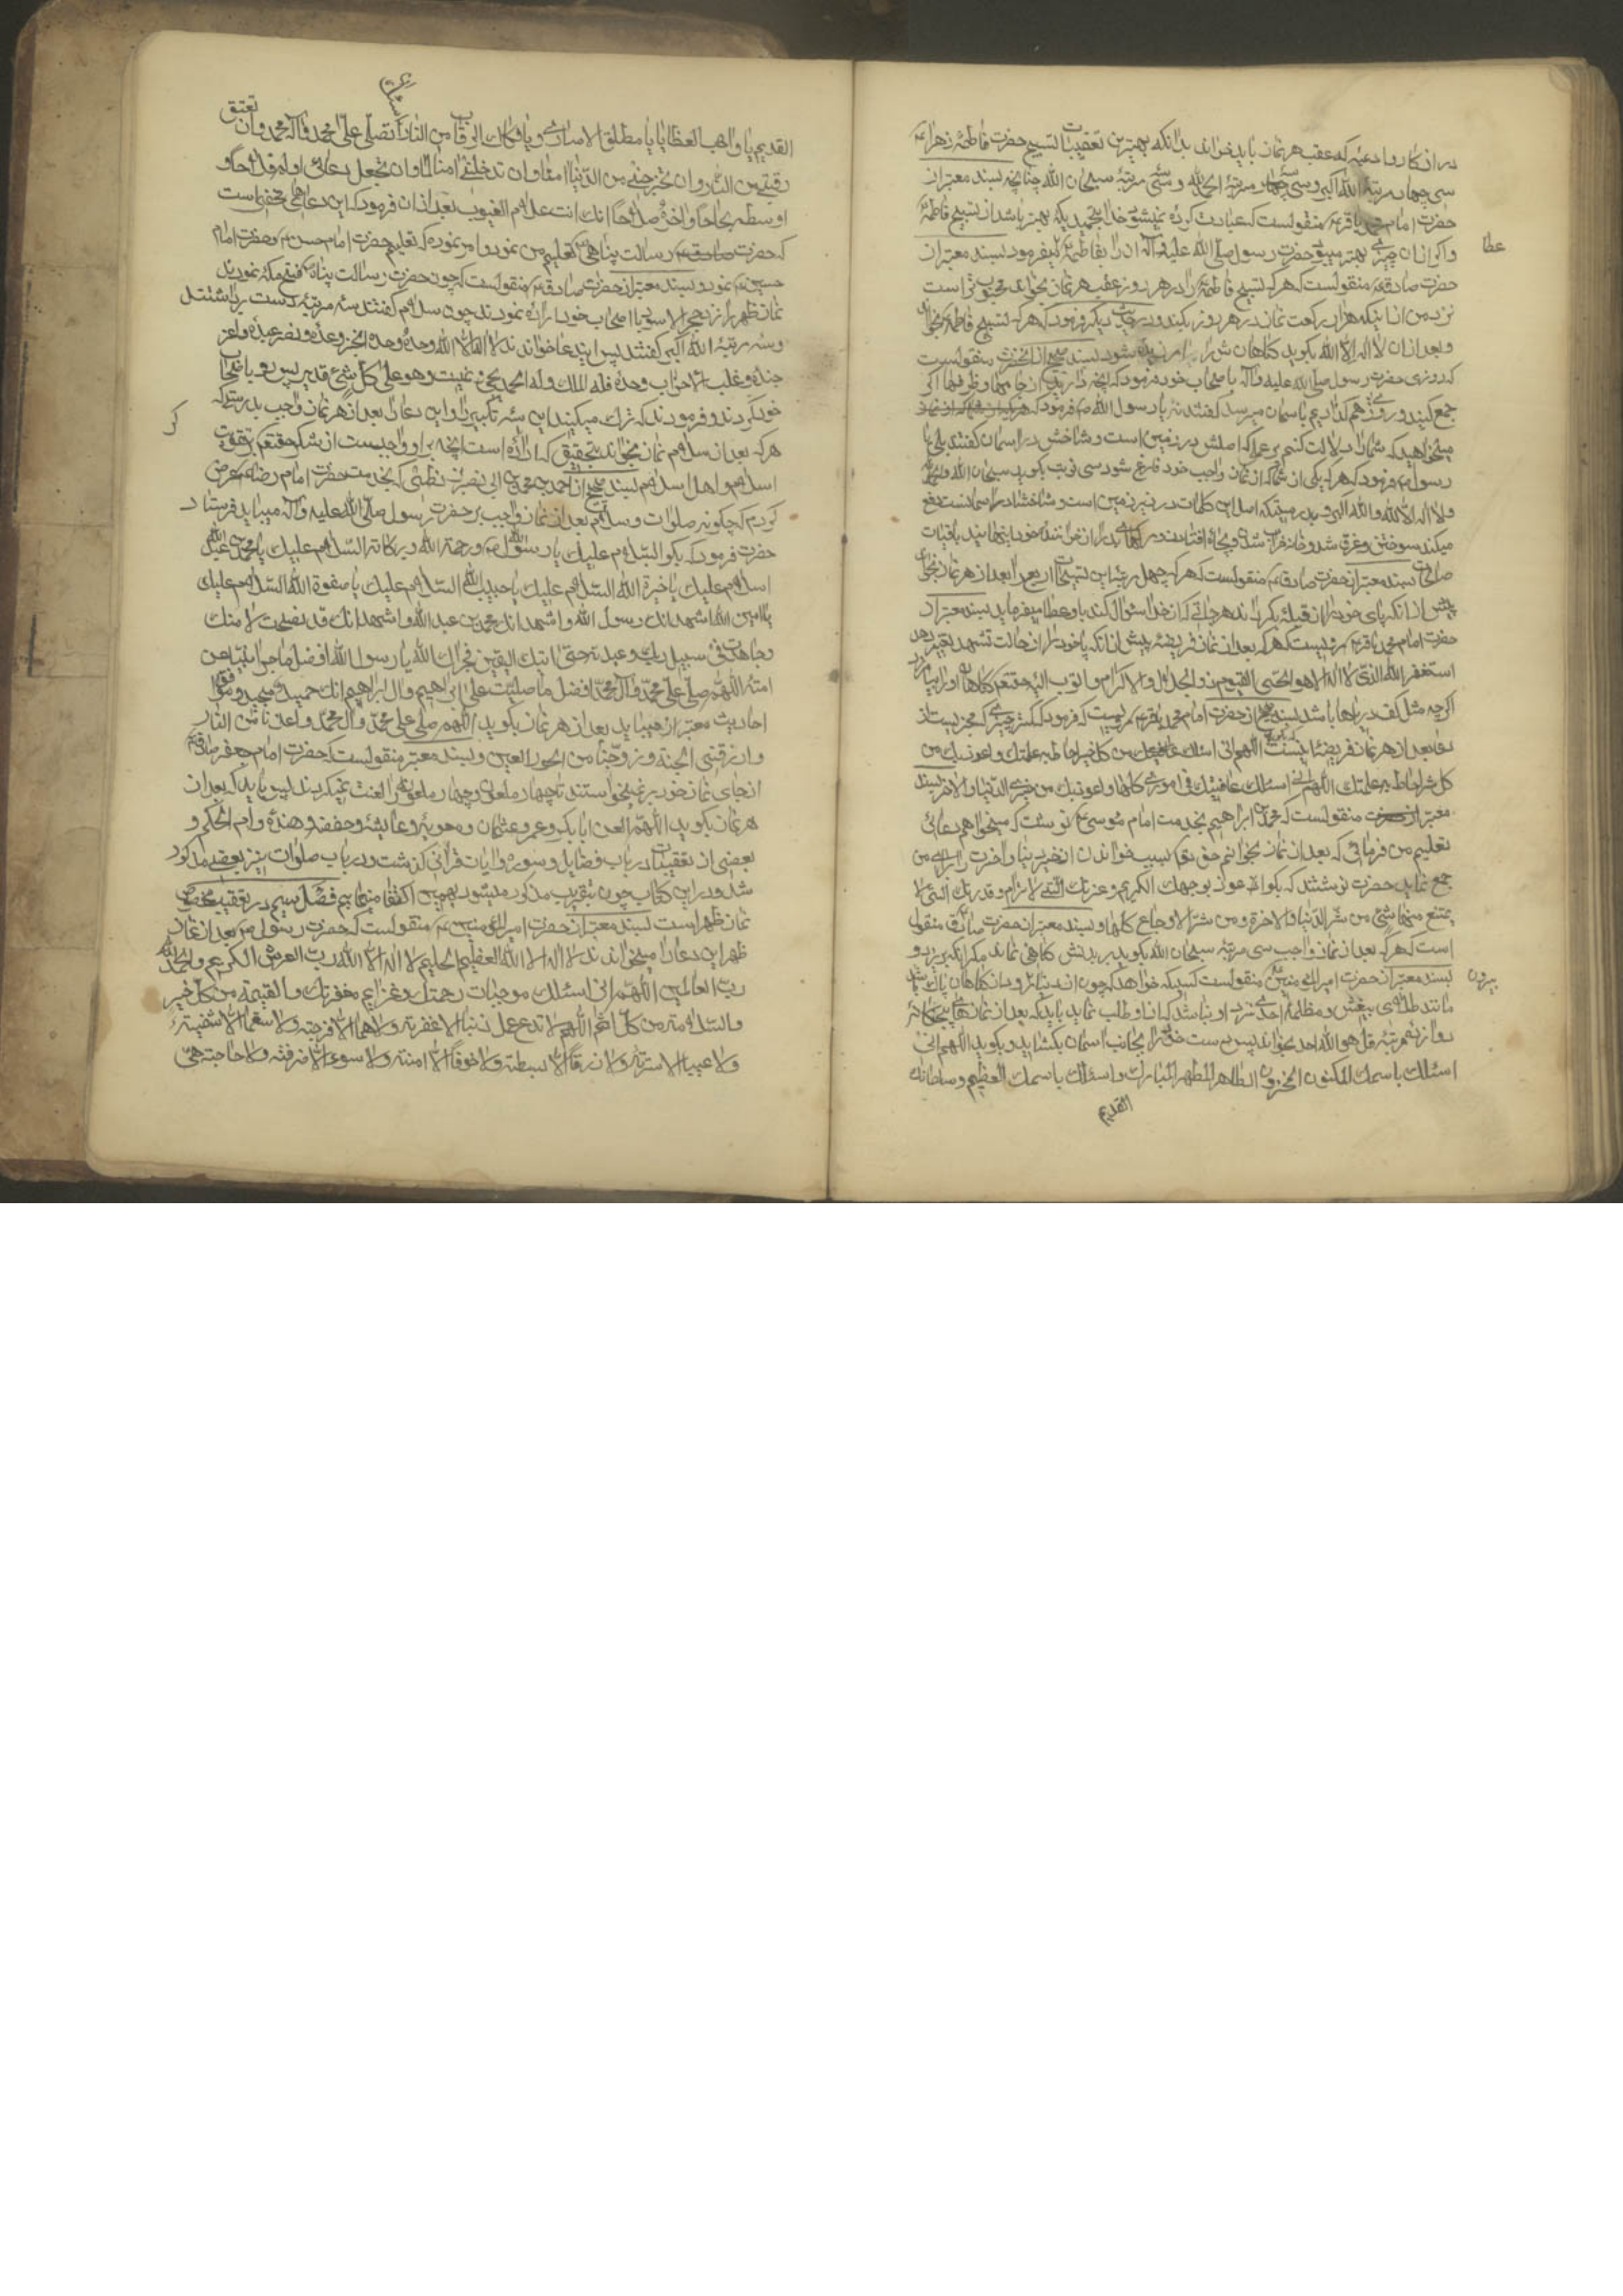 در اذکار و ادعیه که عقب هر نماز باید خواند بدانکه بهترین تعقیبات تسبیح حضرت فاطمه زهراء
سی چهار مرتبه الله اکبر و سی مرتبه الحمد لله و سی مرتبه سبحان الله چنانچه بسند معتبر از
حضرت امام محمد باقر منقولست که عبادت کرده نمیشود خدا بتحمیدیکه بهتر باشد از تسبیح فاطمه
و اگر از ان چیزی بهتر میبود حضرت رسول صلی الله علیه وآله ان را بفاطمه میفرمود بسند معتبر از
عطا
حضرت صادق منقولست که هر که تسبیح فاطمه را در هر روز عقب هر نماز بخواند محبوب تر است
نزد من از اینکه هزار رکعت نماز در هر روز بکند و در حدیث دیگر فرمود که هر که تسبیح فاطمه بخواند
و بعد از ان لا اله الا الله بکوید کناهان امرزیده شود بسند صحیح از انحضرت منقولست
که روزی حضرت رسول صلی الله علیه وآله با اصحاب خود فرمود که انچه دارید از جامها و ظرفها اگر
جمع کنید و روی هم کذارید باسمان میرسد گفتند نه یا رسول الله فرمود که
میخواهید که شما را دلالت کنم بر عملیکه اصلش در زمین است و شاخش در اسمان گفتند بلی یا
رسول الله فرمود که هر که یکی از شما که از نماز واجب خود فارغ شود سی نوبت بکوید سبحان الله والحمد لله
ولا اله الا الله والله اکبر بدرستیکه اصل این کلمات در زیر زمین است و شاخش در اسمانست دفع
میکند سوختن و غرق شدن و خانه خراب شدن و بچاه افتادن
صالحات بسند معتبر از حضرت صادق منقولست که هر که چهل مرتبه این تسبیحات اربع را بعد از هر نماز بخواند
پیش از انکه پای خود را از قبله بگرداند هر حاجتی که از خدا سؤال کند باو عطا میفرماید بسند معتبر از
حضرت امام محمد باقر مرویست که هر که بعد از نماز فریضه پیش از انکه پا خود را از حالت تشهد تغییر دهد
استغفر الله الذی لا اله الا هو الحی القیوم ذو الجلال والاکرام واتوب الیه حقتعالی کناهان او را بیامرزد
اگرچه مثل کف دریاها باشد بسند صحیح از حضرت امام محمد باقر مرویست که فرمود که کمتر چیزی که مجزیست از
دعا بعد از هر نماز فریضه اینست اللهم انی اسئلک من کل خیر احاط به علمک واعوذ بک من
کل شر احاط به علمک اللهم انی اسئلک عافیتک فی اموری کلها واعوذ بک من خزی الدنیا والاخرة بسند
معتبر منقولست که محمد بن ابراهیم بخدمت امام موسی نوشت که میخواهم دعائی
تعلیم من فرمائی که بعد از نماز بخوانم حق تعالی بسبب خواندن ان خیر دنیا و اخرت را برای من
جمع نماید حضرت نوشتند که بگو اعوذ بوجهک الکریم وعزتک التی لا ترام وقدرتک التی لا
یمتنع منها شئ من شر الدنیا والاخرة ومن شر الاوجاع کلها و بسند معتبر از حضرت صادق منقول
است که هر که بعد از نماز واجب سی مرتبه سبحان الله بکوید بر بدنش کناهی نماند مکر انکه بریزد و
بسند معتبر از حضرت امیرالمؤمنین منقولست کسیکه خواهد که چون از دنیا رود از کناهان پاک باشد
بیرون
مانند طلای بیغش و مظلمه احدی نزد او نباشد که از او طلب نماید باید که بعد از نمازهای پنجگانه
دوازده مرتبه قل هو الله احد بخواند پس دست خود را بجانب اسمان بکشاید و بکوید اللهم انی
اسئلک باسمک المکنون المخزون الطاهر المطهر المبارک واسئلک باسمک العظیم وسلطانک
القدیم
القدیم یا واهب العطایا یا مطلق الاساری ویا فکاک الرقاب من النار ان تصلی علی محمد وآل محمد وان تعتق
رقبتی من النار وان تخرجنی من الدنیا امنا وان تدخلنی الجنة سالما وان تجعل دعائی اوله فلاحا و
اوسطه نجاحا واخره صلاحا انک انت علام الغیوب بعد از ان فرمود که این دعاهای مخفی است
که حضرت رسالت پناهی تعلیم من نمود و امر نمود که تعلیم حضرت امام حسن و حضرت امام
حسین نمود و بسند معتبر از حضرت صادق منقولست که چون حضرت رسالت پناه فتح مکه نمودند
نماز ظهر را نزد حجر الاسود با اصحاب خود ادا نمودند چون سلام گفتند سه مرتبه دست برداشتند
و سه مرتبه الله اکبر گفتند پس این دعا خواندند لا اله الا الله وحده وحده انجز وعده ونصر عبده واعز
جنده وغلب الاحزاب وحده فله الملک وله الحمد یحیی ویمیت وهو علی کل شئ قدیر پس رو باصحاب
خود کردند و فرمودند که ترک میکنید این سه تکبیر را و این دعا را بعد از هر نماز واجب بدرستیکه
هر که بعد از سلام نماز بخواند بتحقیق که ادا کرده است انچه بر او واجبست از شکر حقتعالی بر تقویت
اسلام و اهل اسلام بسند صحیح از احمد بن محمد بن ابی نصر بزنطی که بخدمت حضرت امام رضا عرض
کردم که چکونه صلوات و سلام بعد از نماز واجب بر حضرت رسول صلی الله علیه وآله میباید فرستاد
حضرت فرمود که بکو السلام علیک یا رسول الله ورحمة الله وبرکاته السلام علیک یا محمد بن عبد الله
السلام علیک یا خیرة الله السلام علیک یا حبیب الله السلام علیک یا صفوة الله السلام علیک
یا امین الله اشهد انک رسول الله واشهد انک محمد بن عبد الله واشهد انک قد نصحت لامتک
وجاهدت فی سبیل ربک وعبدته حتی اتیک الیقین فجزاک الله یا رسول الله افضل ما جزی نبیا عن
امته اللهم صلی علی محمد وآل محمد افضل ما صلیت علی ابراهیم وآل ابراهیم انک حمید مجید و موافق
احادیث معتبر از میباید بعد از هر نماز بکوید اللهم صلی علی محمد وآل محمد واعذنا من النار
وارزقنی الجنة وزوجنا من الحور العین و بسند معتبر منقولست که حضرت امام جعفر صادق
از جای نماز خود بر نمیخواستند تا چهار ملعون و چهار ملعونه را لعنت نمیکردند پس باید که بعد از
هر نماز بکوید اللهم العن ابابکر وعمر وعثمان ومعویه وعایشه وحفصه وهنده وام الحکم و
بعضی از تعقیبات در باب فضایل و سوره و ایات قرآنی گذشت و در باب صلوات نیز بعضی مذکور
شد و در این کتاب چون بتقریب مذکور میشود بهمین اکتفا مینمایم فصل سیم در تعقیب مخصوص
نماز ظهر است بسند معتبر از حضرت امیرالمؤمنین منقولست که حضرت رسول بعد از نماز
ظهر این دعا را میخواندند لا اله الا الله العظیم الحلیم لا اله الا الله رب العرش الکریم والحمد لله
رب العالمین اللهم انی اسئلک موجبات رحمتک وعزایم مغفرتک والغنیمة من کل خیر
والسلامة من کل اثم اللهم لا تدع لی ذنبا الا غفرته ولا هما الا فرجته ولا سقما الا شفیته
ولا عیبا الا سترته ولا رزقا الا بسطته ولا خوفا الا امنته ولا سوء الا صرفته ولا حاجة هی